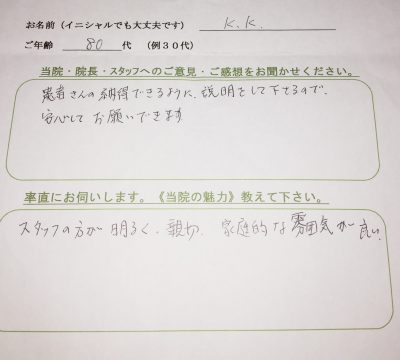 お名前（イニシャルでも大丈夫です） K.K.
ご年齢 80 代 （例３０代）
当院・院長・スタッフへのご意見・ご感想をお聞かせください。
患者さんの納得できるように、説明をして下さるので、
安心して お願いできます
率直にお伺いします。《当院の魅力》教えて下さい。
スタッフの方が 明るく、親切、家庭的な雰囲気が 良い、